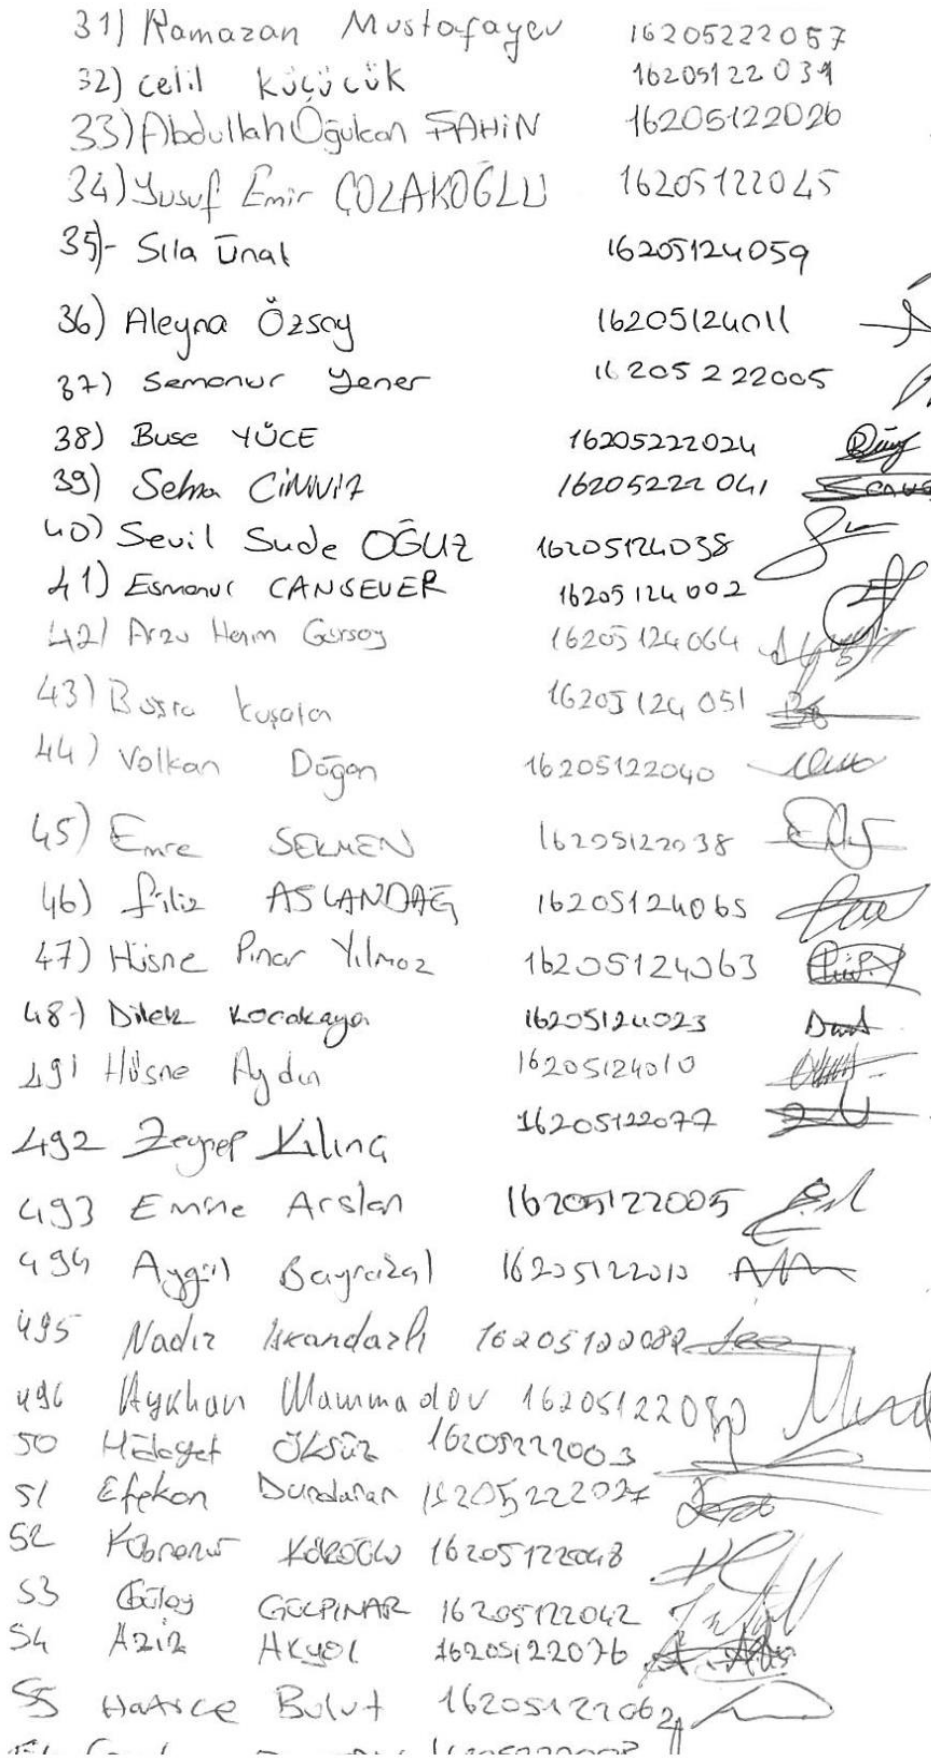 31) Ramazan Mustafayev 16205222057
32) Celil Küçücük 16205122039
33) Abdullah Oğulcan ŞAHİN 16205122026
34) Yusuf Emir ÇOLAKOĞLU 16205122045
35)- Sıla Ünal 16205124059
36) Aleyna Özsoy 16205124011
37) Semanur Yener 16205222005
38) Buse YÜCE 16205222024
39) Selma 16205222041
40) Sevil Sude OĞUZ 16205124038
41) Esmanur CANSEVER 16205124002
42) Arzu Gürsoy 16205124064
43) Büşra Kuşaların 16205124051
44) Volkan Doğan 16205122040
45) Emre SEKMEN 16205122038
46) Filiz ASLANDAĞ 16205124065
47) Hüsne Pınar Yılmaz 16205124063
48-) Dilek Kocakaya 16205124023
491 Hüsne Aydın 16205124010
492 Zeynep Kılınç 16205122077
493 Emine Arslan 16205122005
494 Aygül Bayrakal 16205122010
495 Nadir Iskandarlı 16205122082
496 Aykhan Mammadov 16205122080
50 Hidayet ÖKSÜZ 16205222003
51 Efekan Dundaran 16205222027
52 Kübranur KÖROĞLU 16205122048
53 Gülay GÜLPINAR 16205122042
54 Aziz AKYOL 16205122076
55 Hatice Bulut 16205122062